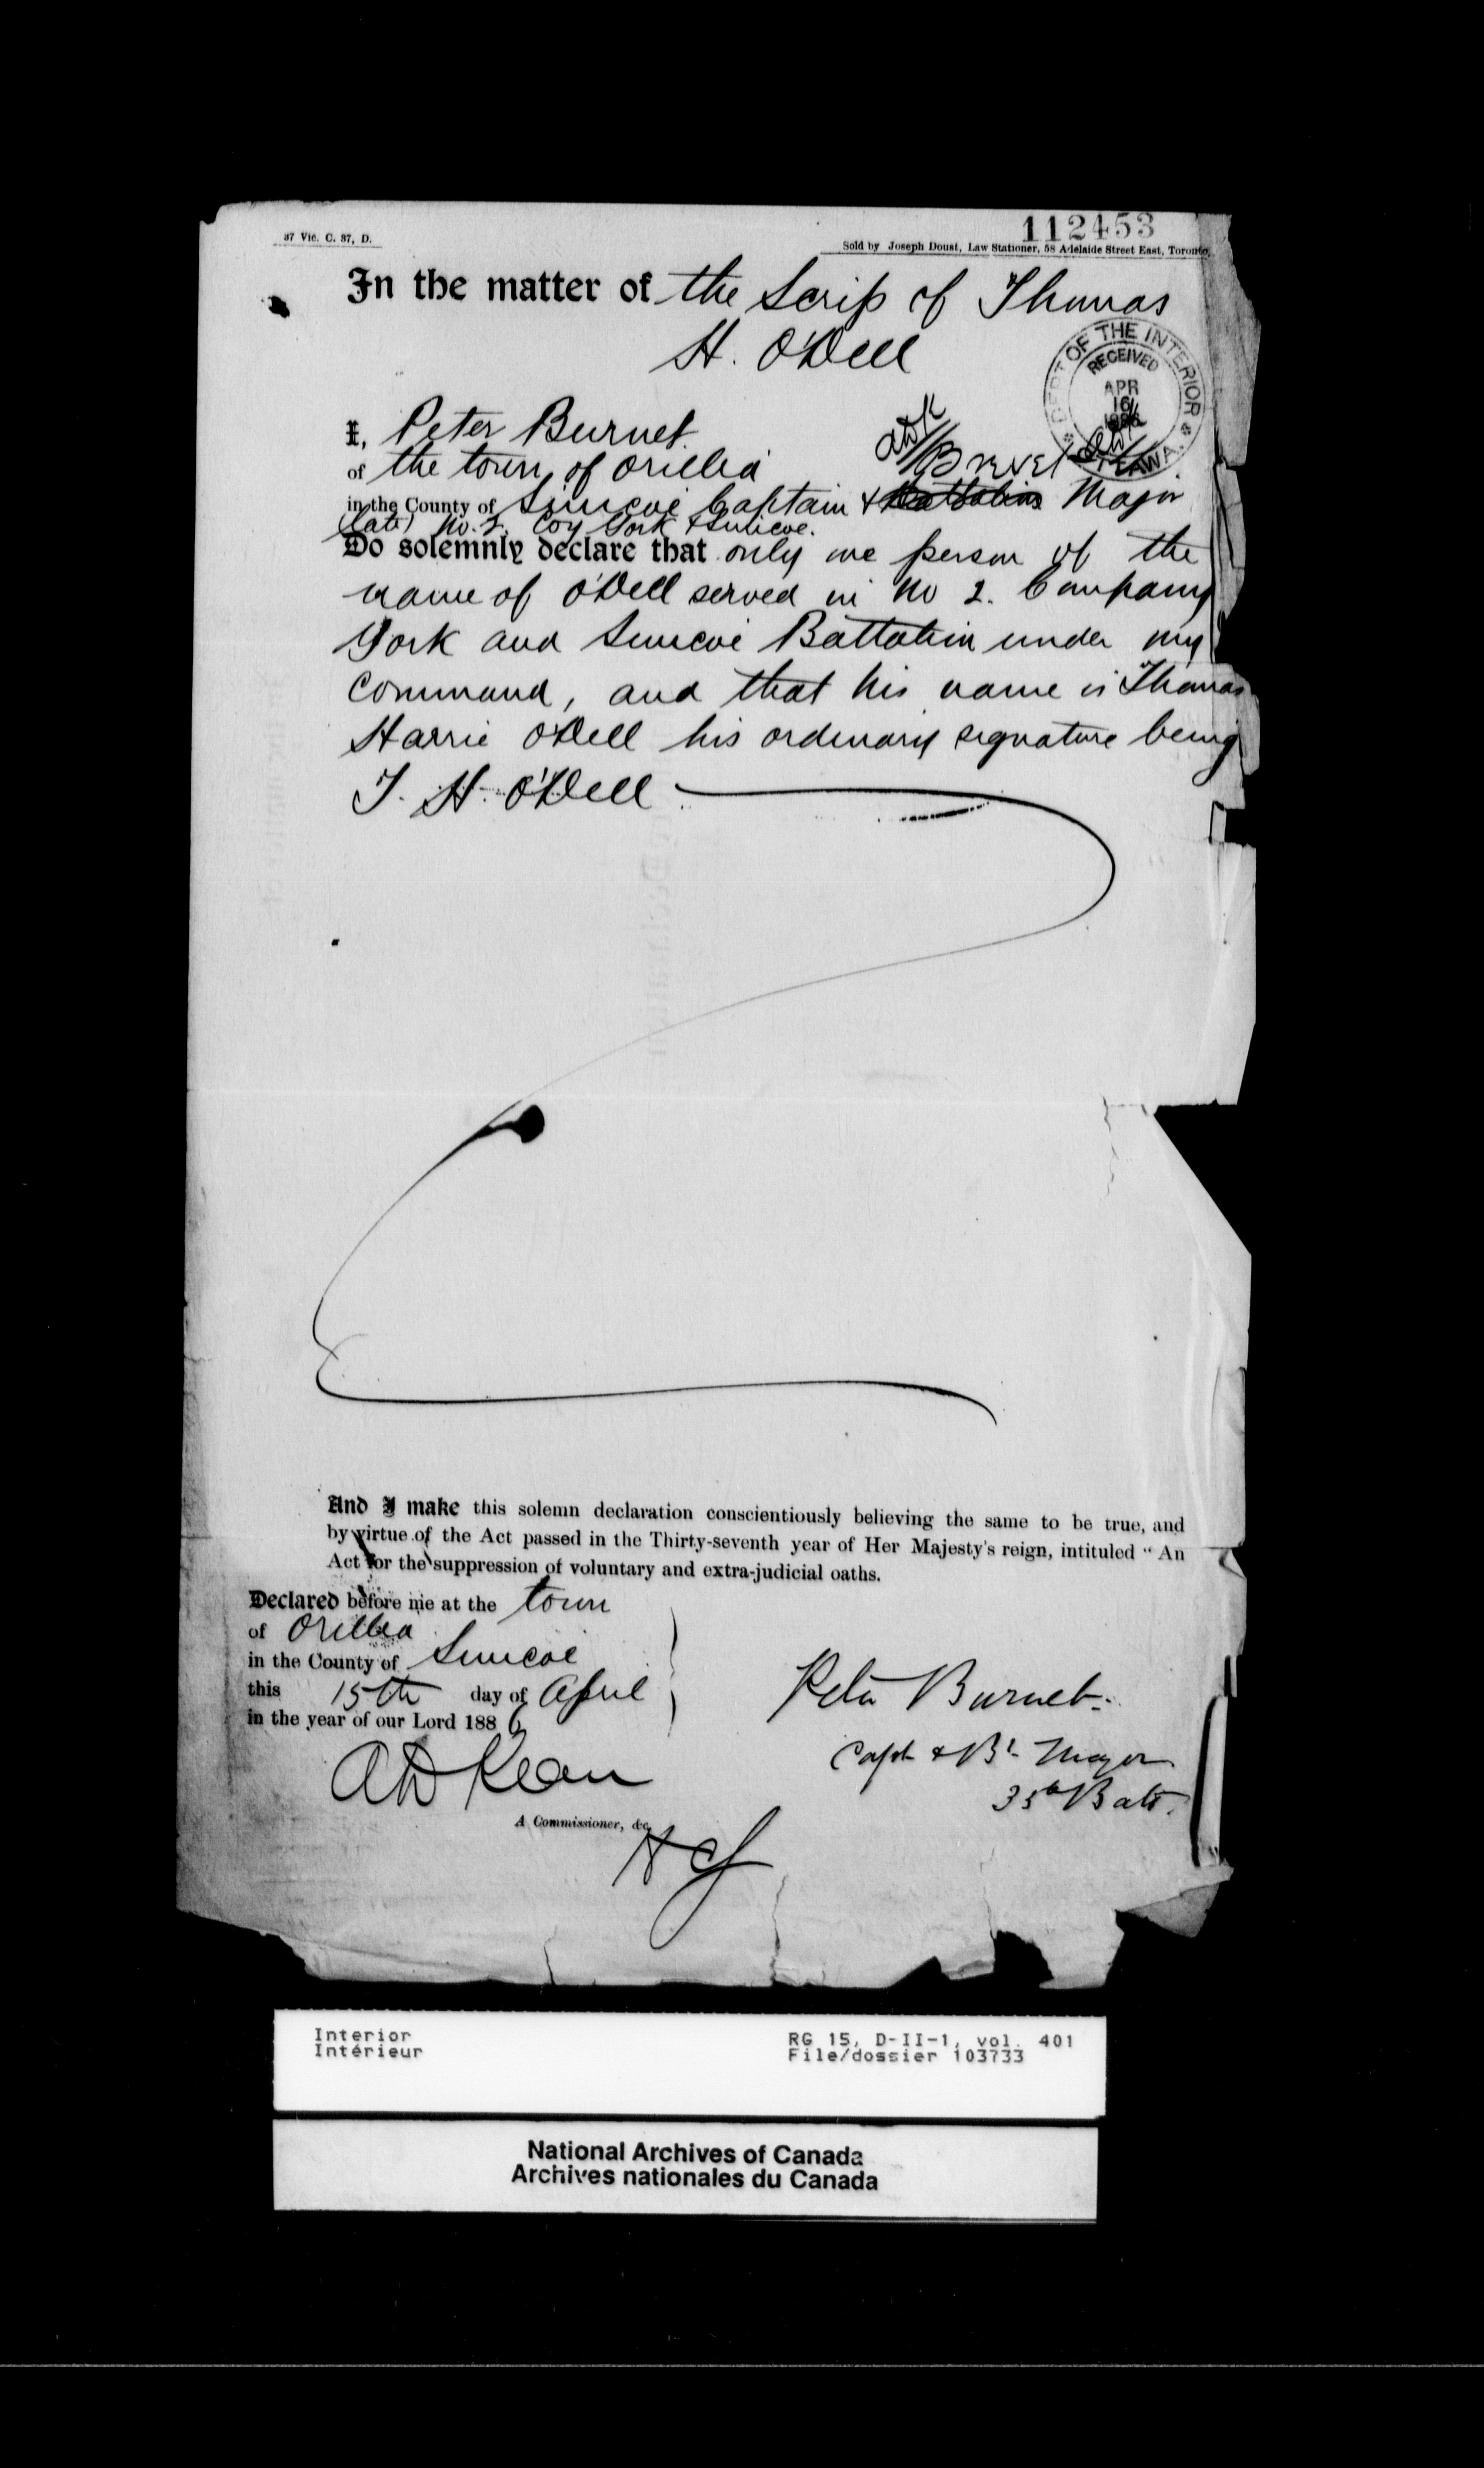 37 Vic. C. 37, D.
112453
Sold by Joseph Doust, Law Stationer, 58 Adelaide Street East, Toronto.
In the matter of the Scrip of Thomas
H. O'Dell
DEPT OF THE INTERIOR
RECEIVED
APR
16
1886
OTTAWA
I, Peter Burnet
of the town of Orillia
ADK
Brevet
in the County of Simcoe Captain & Battalion Major
(late) No. 2. Coy York & Simcoe.
Do solemnly declare that only one person of the
name of O'Dell served in No 2. Company
York and Simcoe Battalion under my
command, and that his name is Thomas
Harrie O'Dell his ordinary signature being
T. H. O'Dell
And I make this solemn declaration conscientiously believing the same to be true, and
by virtue of the Act passed in the Thirty-seventh year of Her Majesty's reign, intituled "An
Act for the suppression of voluntary and extra-judicial oaths.
Declared before me at the town
of Orillia
in the County of Simcoe
this 15th day of April
in the year of our Lord 1886
Peter Burnet.
Capt & Bt Major
35th Batt.
A D Kean
A Commissioner, &c.
HCJ
Interior
Intérieur
RG 15, D-II-1, vol. 401
File/dossier 103733
National Archives of Canada
Archives nationales du Canada